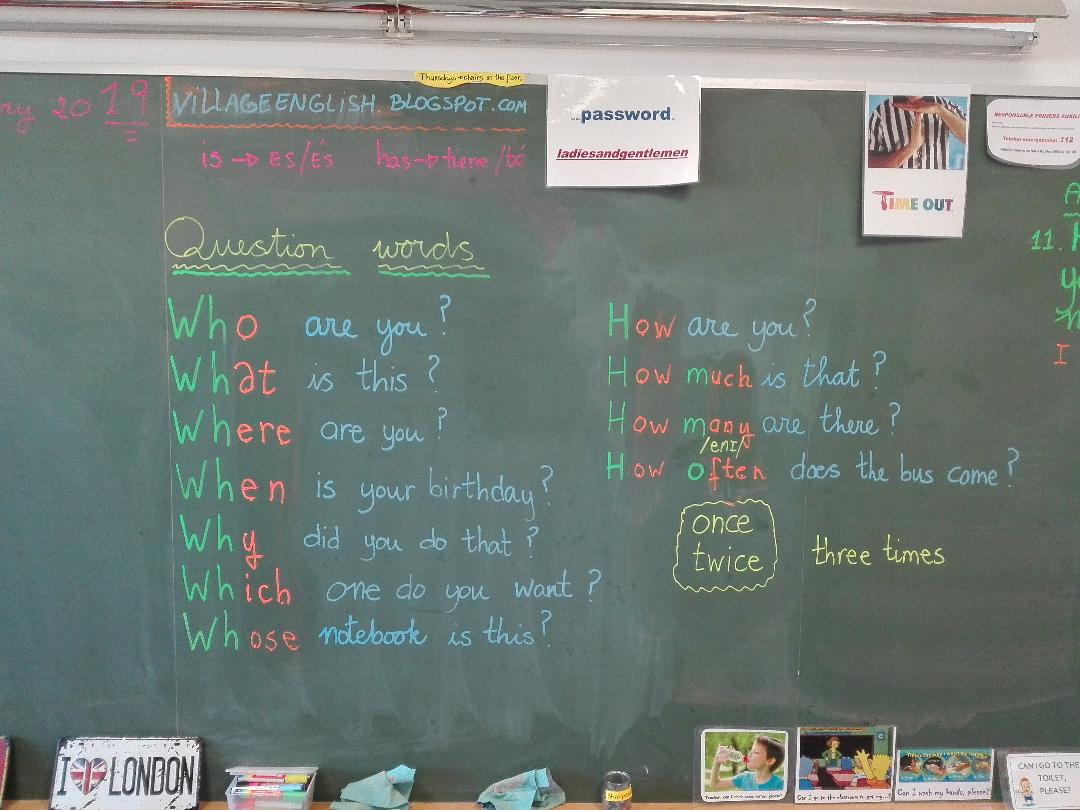 Thursdays→chairs on the floor.
2019
VILLAGEENGLISH.BLOGSPOT.COM
is → ES/ÉS has → tiene/té
password
ladiesandgentlemen
TIME OUT.
RESPONSABLE PRIMERS AUXILI
Telèfon emergències: 112
Question words
Who are you?
What is this?
Where are you?
When is your birthday?
Why did you do that?
Which one do you want?
Whose notebook is this?
How are you?
How much is that?
How many are there?
/eni/
How often does the bus come?
once
twice
three times
11.
I
I LONDON
Can I wash my hands, please?
CAN I GO TO THE
TOILET,
PLEASE?